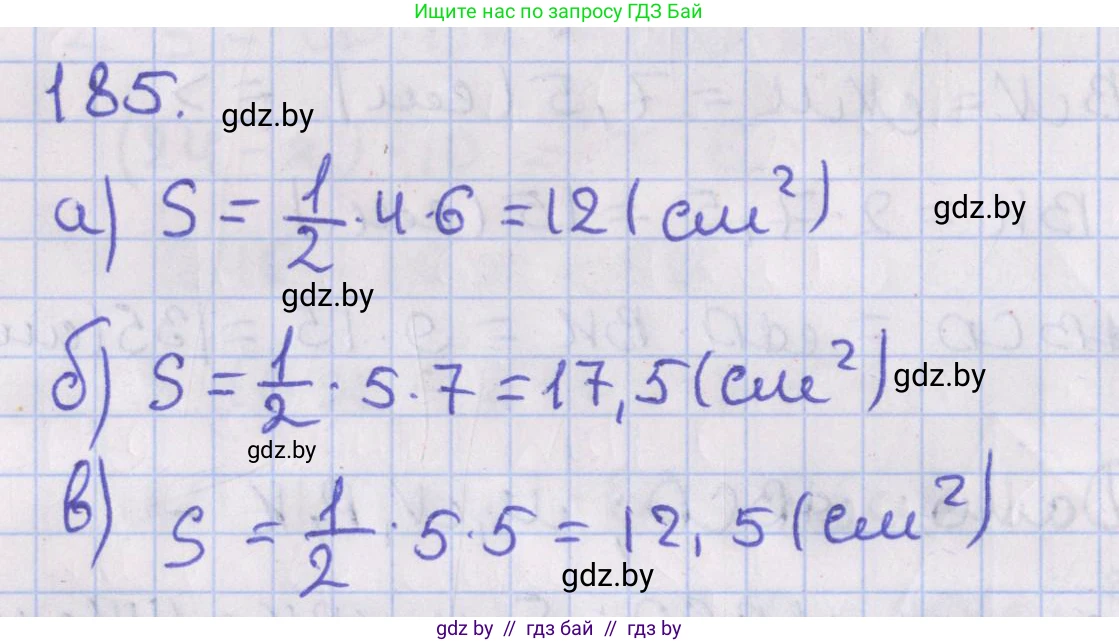 Ищите нас по запросу ГДЗ Бай
185.
gdz.by
а) S = 1/2 · 4 · 6 = 12 (см²)
gdz.by
gdz.by
б) S = 1/2 · 5 · 7 = 17,5 (см²)
gdz.by
gdz.by
в) S = 1/2 · 5 · 5 = 12,5 (см²)
gdz.by
gdz by // гдз бай // gdz by